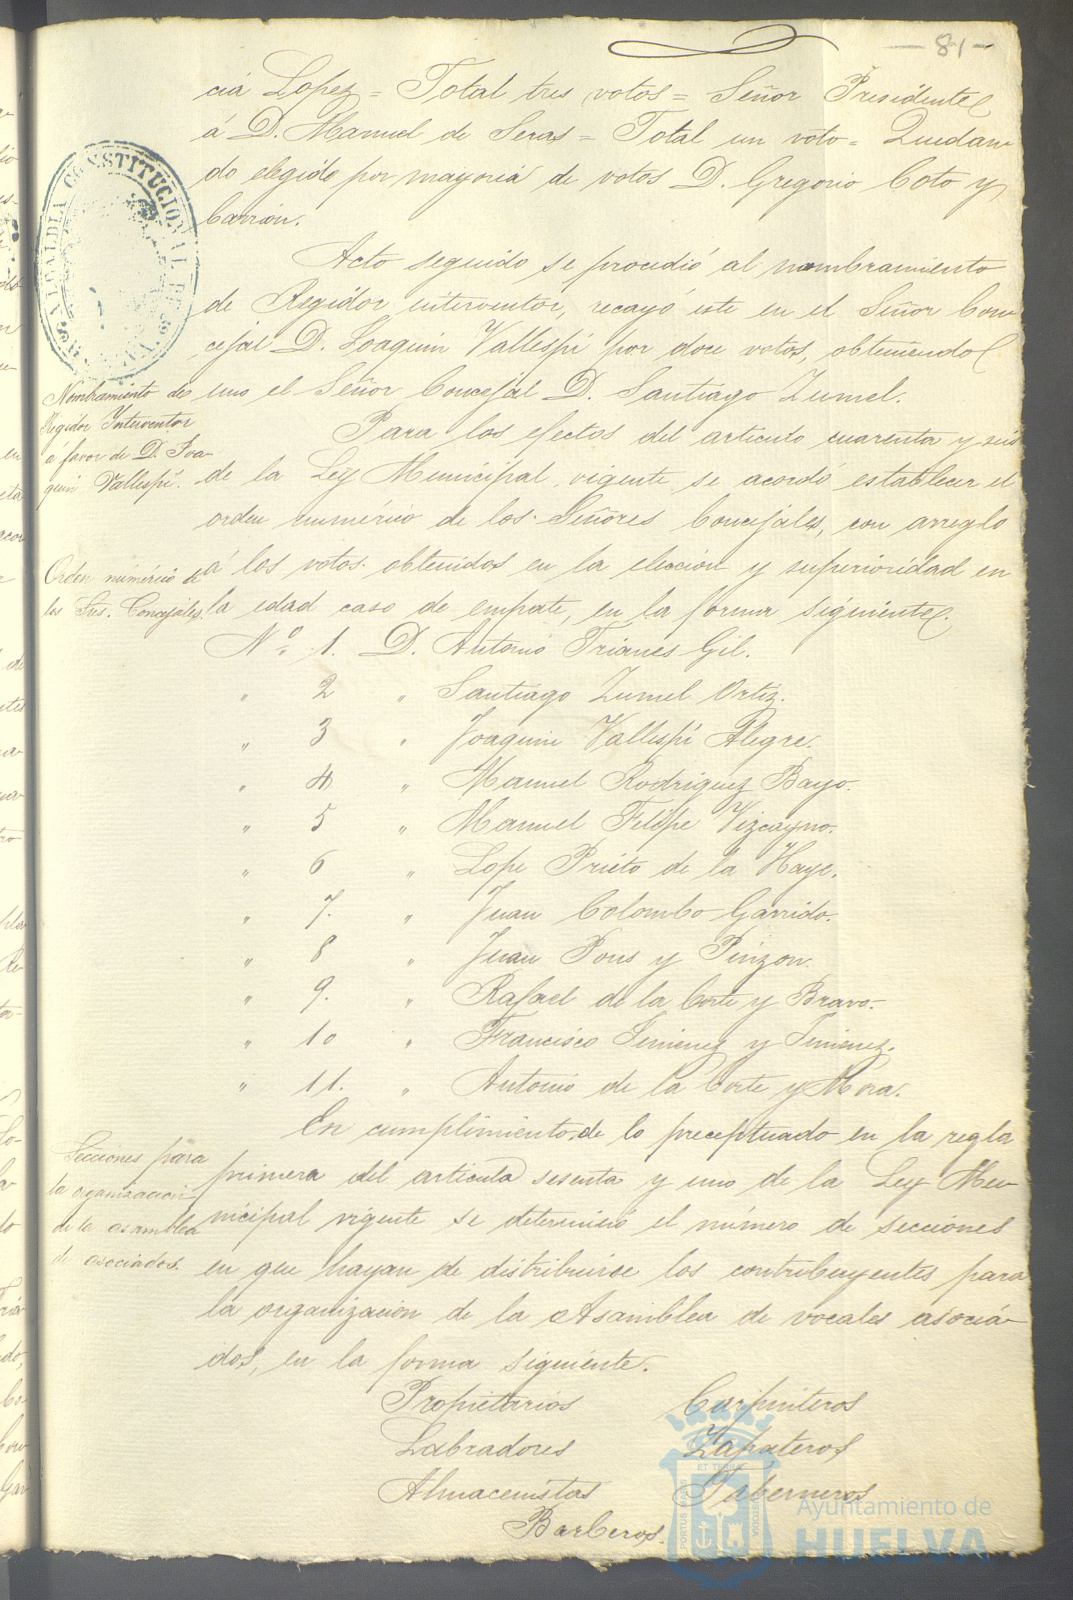 - 81 -
cia Lopez = Total tres votos = Señor Presidente
á D. Manuel de Seras = Total un voto = Quedan-
do elegido por mayoria de votos D. Gregorio Coto y
Carrión.
Acto seguido se procedió al nombramiento
de Regidor interventor, recayó este en el Señor Con-
cejal D. Joaquin Vallespí por doce votos, obteniendo
uno el Señor Concejal D. Santiago Zumel.
Nombramiento de
Regidor Interventor
a favor de D. Joa-
quin Vallespí.
Para los efectos del articulo cuarenta y seis
de la Ley Municipal vigente se acordó establecer el
orden numérico de los Señores Concejales, con arreglo
á los votos obtenidos en la elección y superioridad en
la edad caso de empate, en la forma siguiente.
Orden numérico de
los Sres. Concejales.
Nº 1. D. Antonio Trianes Gil.
" 2 " Santiago Zumel Ortiz.
" 3 " Joaquin Vallespí Alegre.
" 4 " Manuel Rodriguez Bayo.
" 5 " Manuel Felipe Vizcayno.
" 6 " Lope Prieto de la Haye.
" 7. " Juan Colombo Garrido.
" 8 " Juan Pons y Pinzon.
" 9. " Rafael de la Corte y Bravo.
" 10 " Francisco Jimenez y Jimenez.
" 11. " Antonio de la Corte y Mora.
En cumplimiento de lo preceptuado en la regla
primera del articulo sesenta y uno de la Ley Mu-
nicipal vigente se determinó el número de secciones
en que hayan de distribuirse los contribuyentes para
la organización de la Asamblea de vocales asocia-
dos, en la forma siguiente.
Secciones para
la organizacion
de la asamblea
de asociados.
Propietarios Carpinteros
Labradores Zapateros
Almacenistas Taberneros
Barberos.
ALCALDIA CONSTITUCIONAL DE
PORTUS MARIS ET TERRAE CUSTODIA
Ayuntamiento de
HUELVA